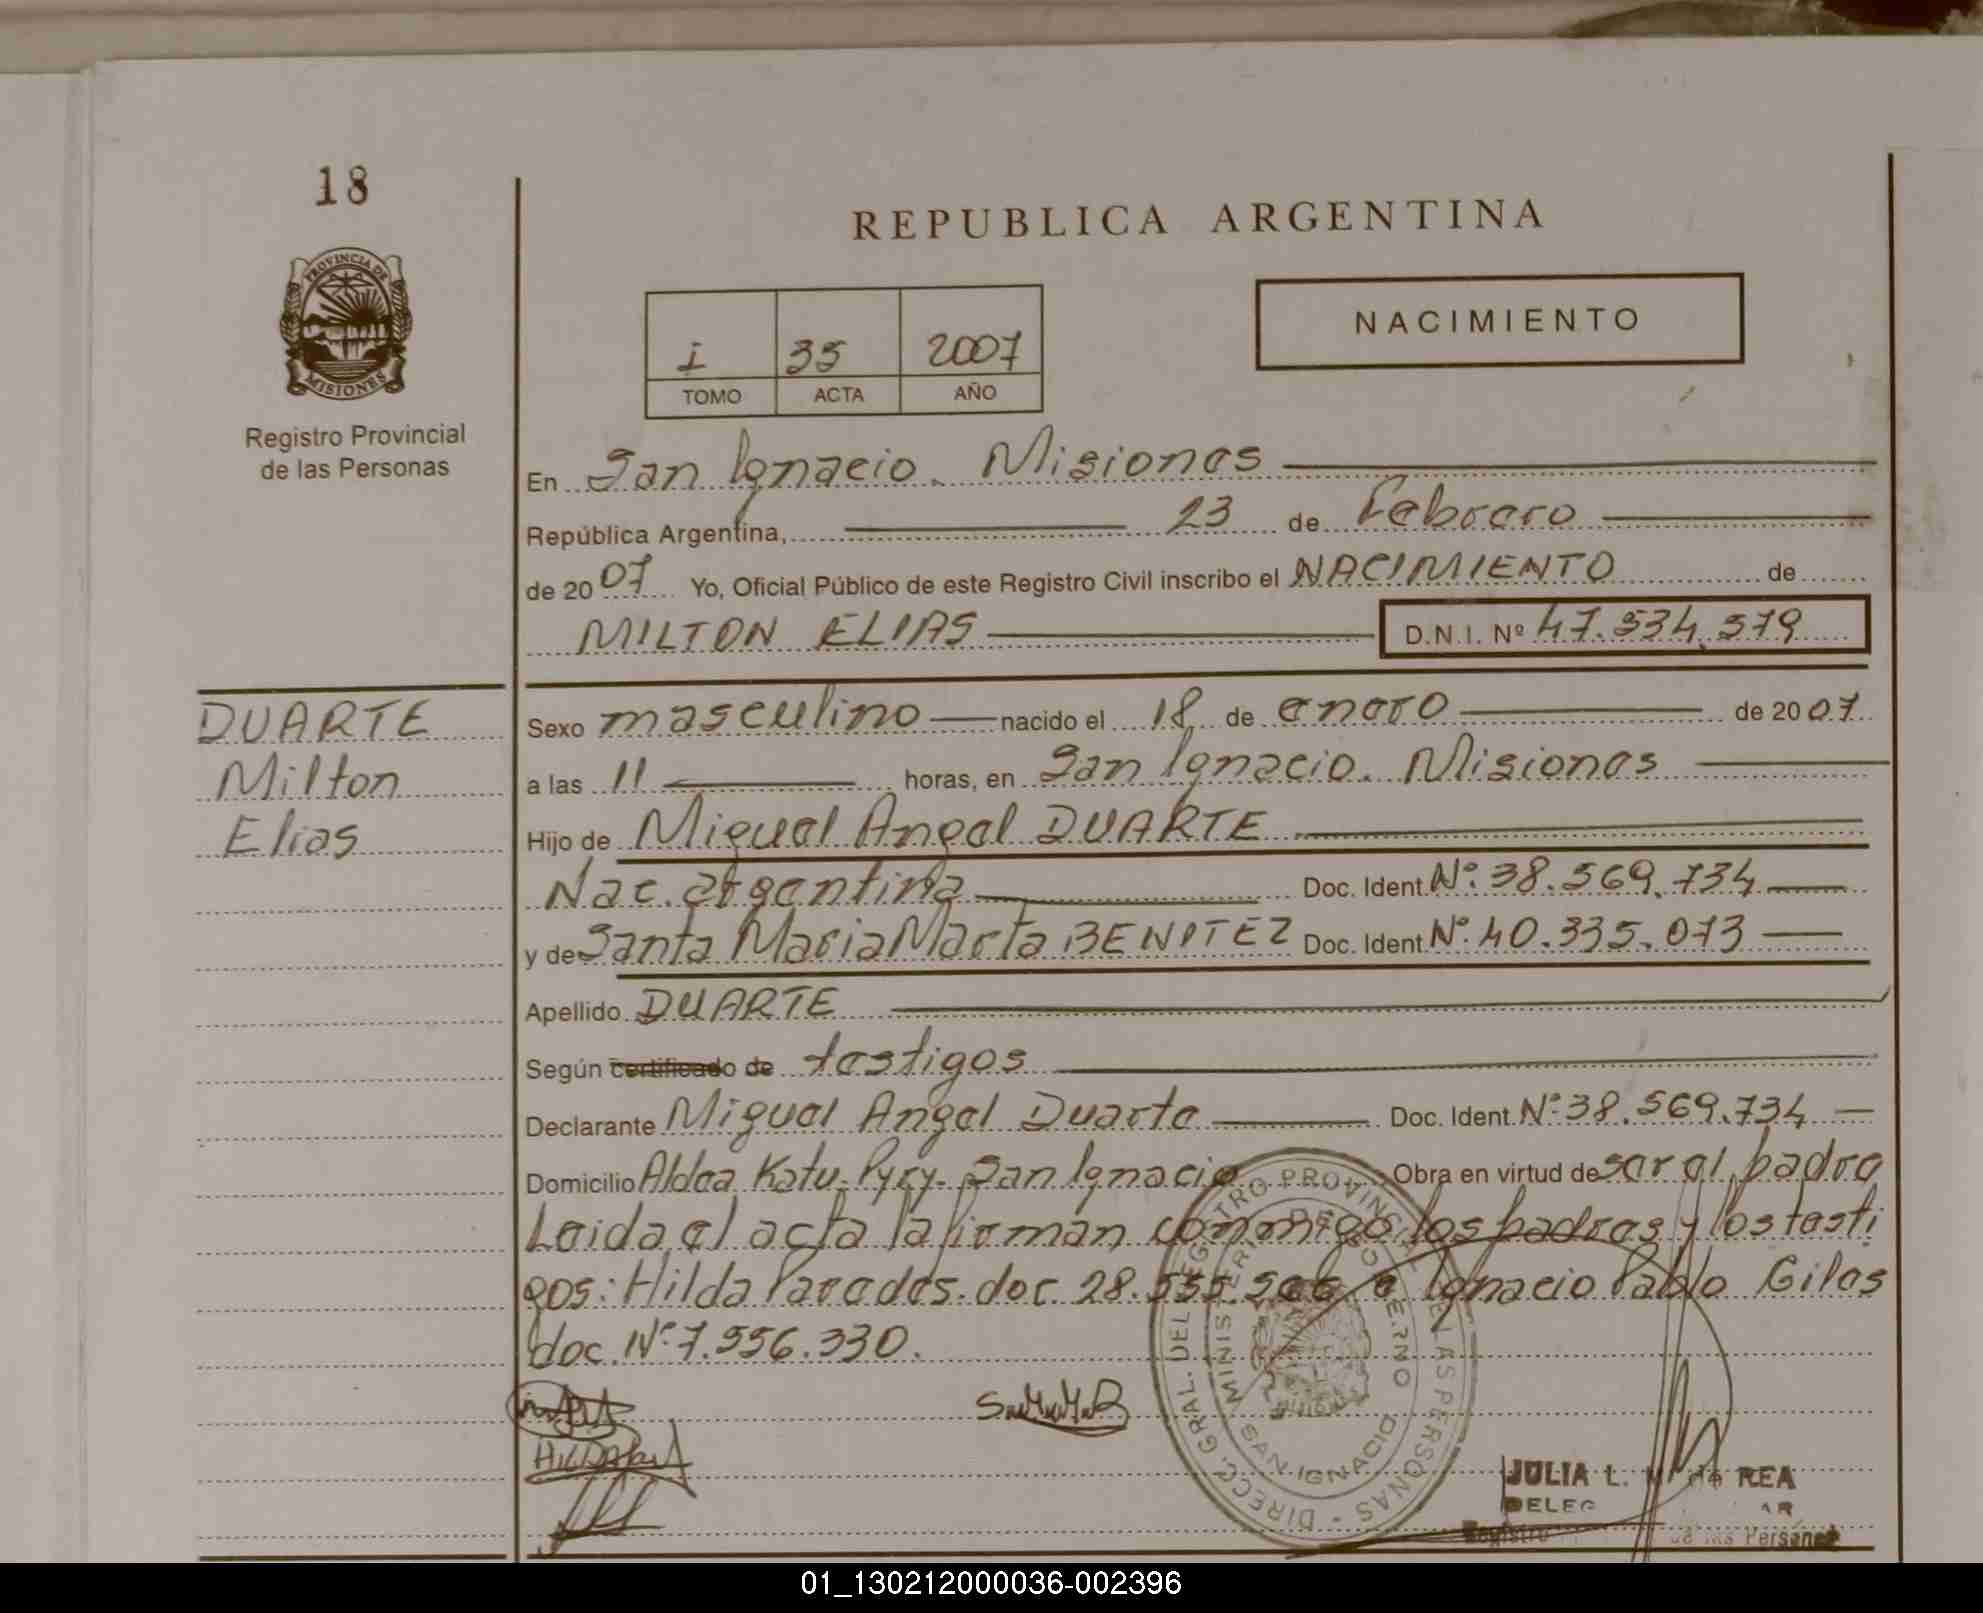 18
REPUBLICA ARGENTINA
PROVINCIA DE
MISIONES
Registro Provincial
de las Personas
1 35 2007
TOMO ACTA AÑO
NACIMIENTO
En San Ignacio. Misiones
República Argentina, 23 de Febrero
de 2007 Yo, Oficial Público de este Registro Civil inscribo el NACIMIENTO de
MILTON ELIAS D.N.I. Nº 47.534.579
DUARTE
Milton
Elias
Sexo masculino nacido el 18 de enero de 2007
a las 11 horas, en San Ignacio. Misiones
Hijo de Miguel Angel DUARTE
Nac. argentina Doc. Ident. Nº. 38.569.734
y de Santa Maria Marta BENITEZ Doc. Ident. Nº. 40.335.073
Apellido DUARTE
Según certificado de testigos
Declarante Miguel Angel Duarte Doc. Ident. Nº. 38.569.734
Domicilio Aldea Katu-Pyry- San Ignacio Obra en virtud de ser el padre
Leida el acta la firman conmigo los padres y los testi
gos: Hilda Paredes. doc. 28. e Ignacio Pablo Giles
doc. Nº. 7.556.330.
S.M.M.B
HILDA
DIRECC. GRAL. DEL REGISTRO PROVINCIAL DE LAS PERSONAS
MINISTERIO DE GOBIERNO
SAN IGNACIO
JULIA L. de REA
DELEG AR
Registro de las Personas
01_130212000036-002396